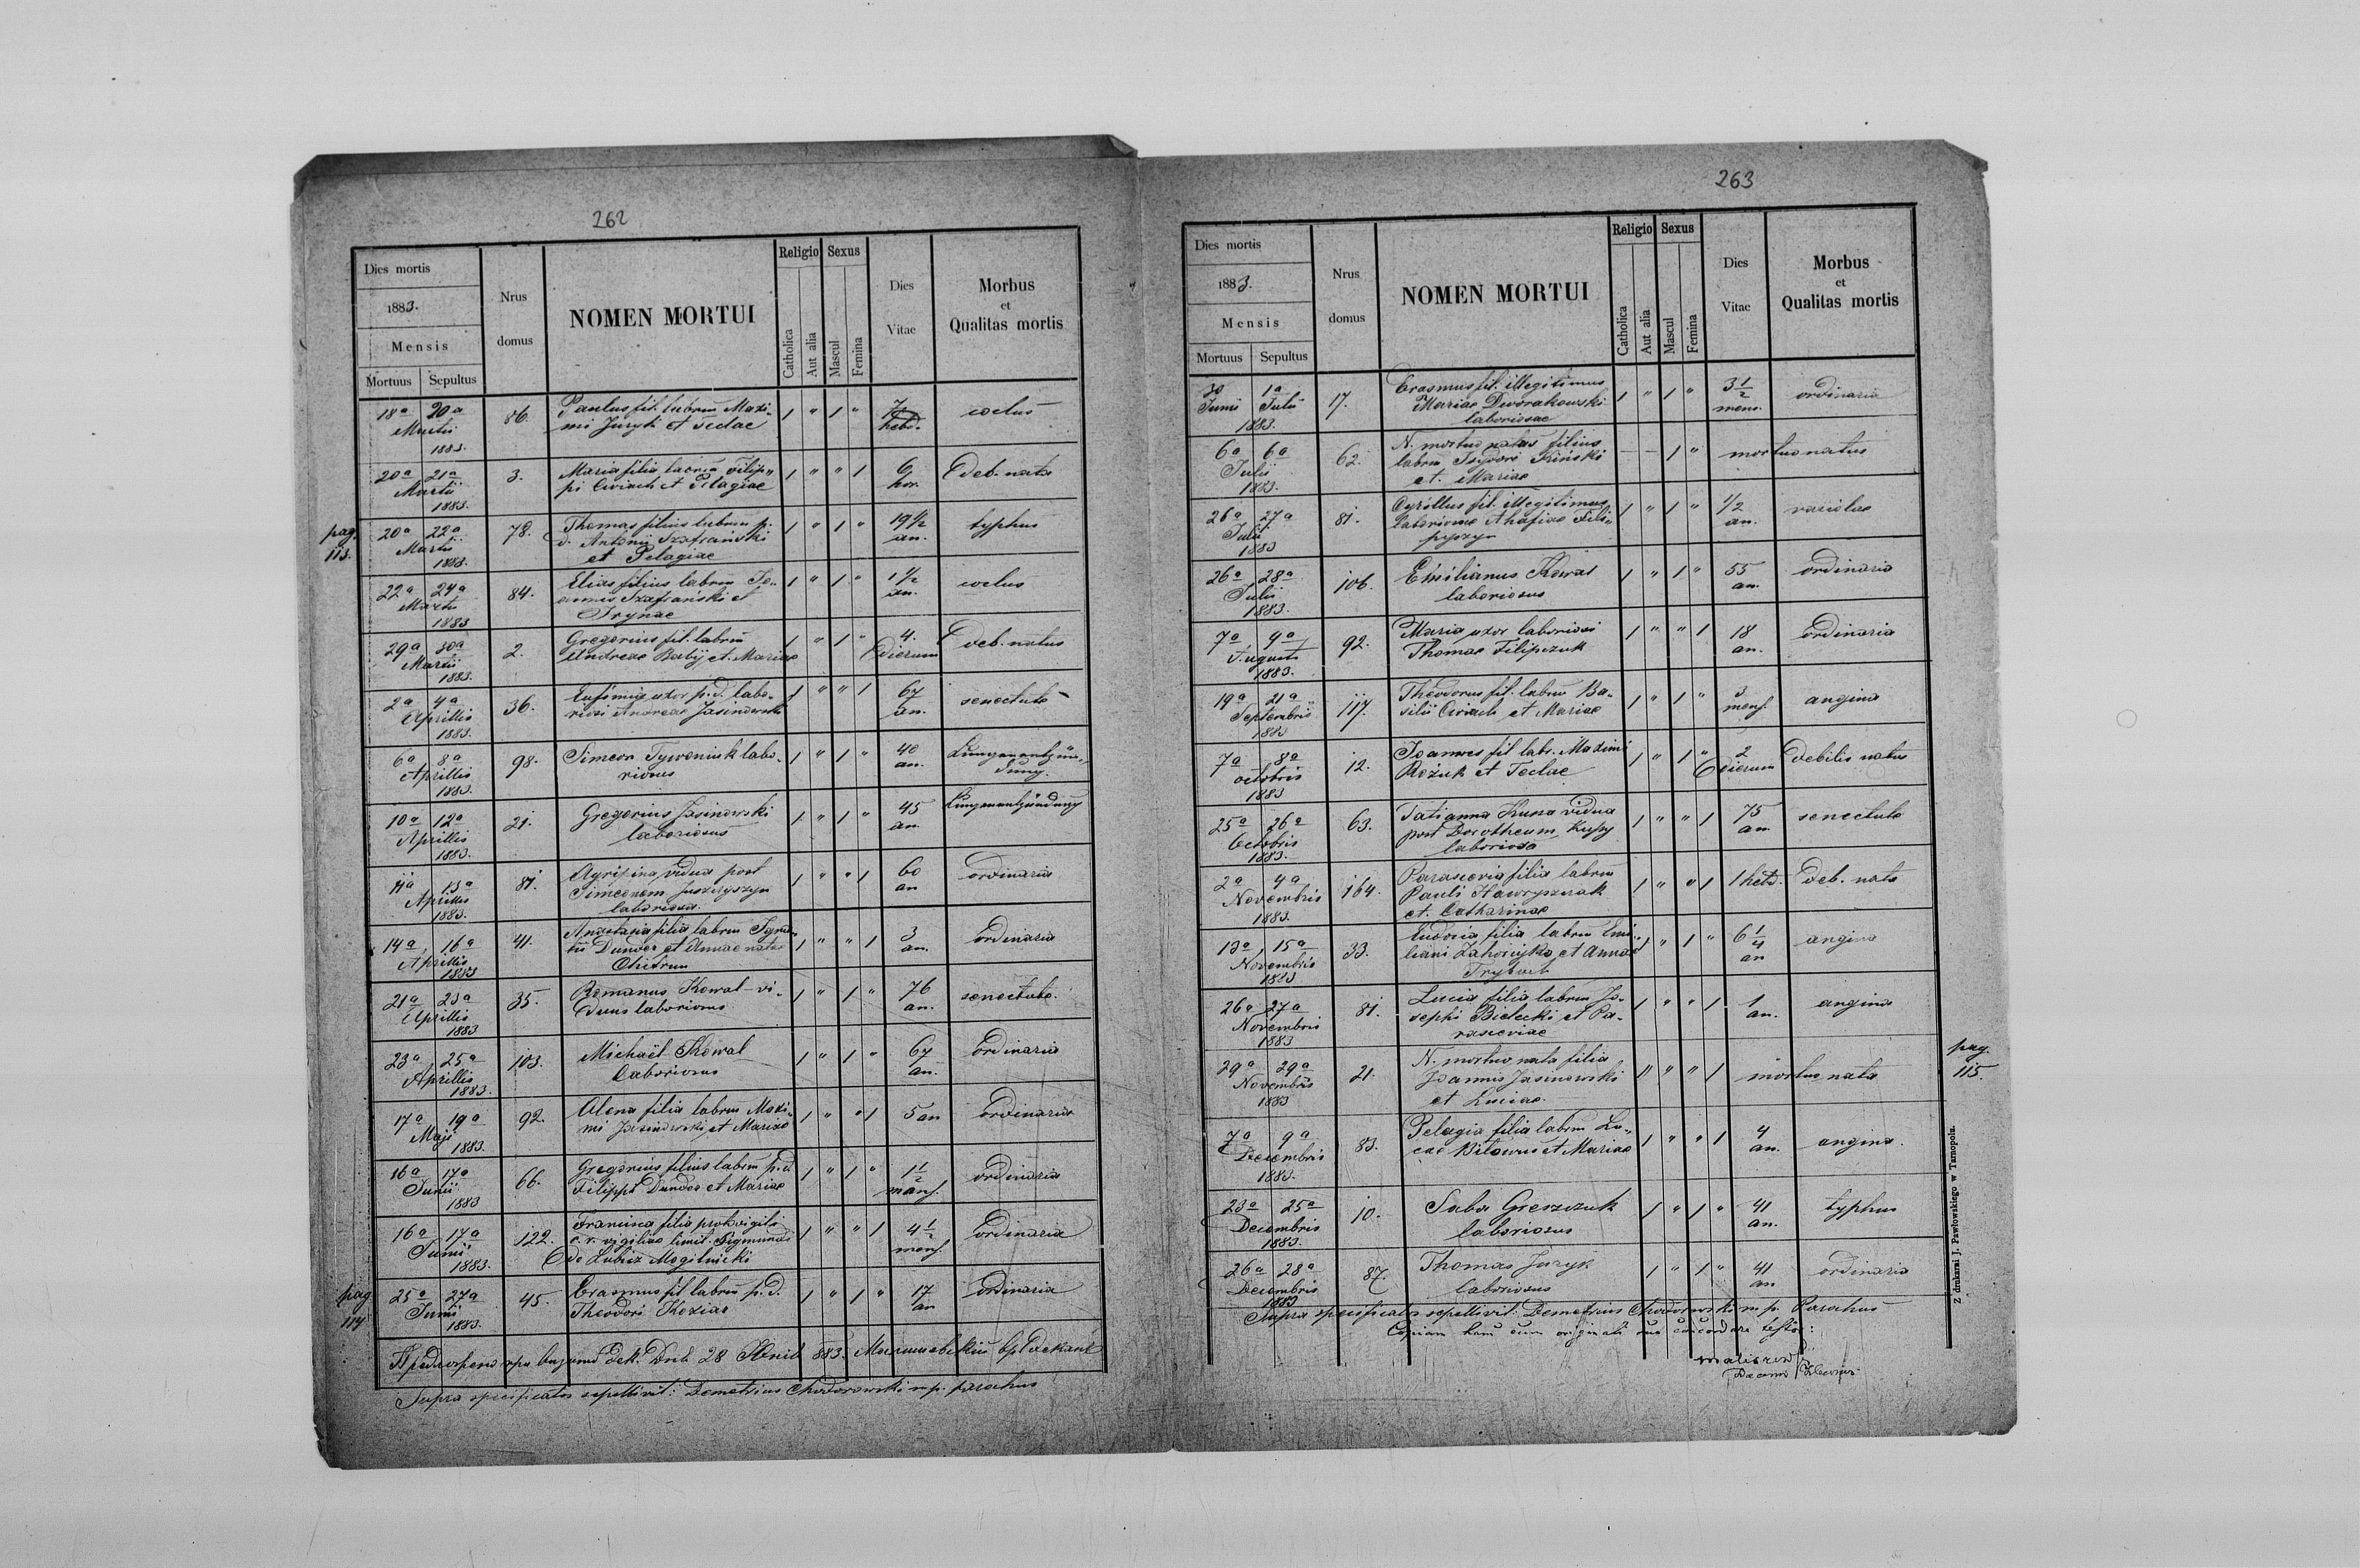 262
Dies mortis
1883.
Mensis
Mortuus Sepultus
Nrus domus
NOMEN MORTUI
Religio Sexus
Catholica Aut alia Mascul Femina
Dies Vitae
Morbus et Qualitas mortis
18a 20a 86. Paulus fil. labrm Maxi- 1 " 1 " 7 coclus
Martii mi Juryk et Teclae hebd.
1883.
20a 21a 3. Maria filia labrm Filip- 1 " " 1 6 deb. nata
Martii pi Cwiach et Pelagiae hor.
1883.
pag. 113.
20a 22a 78. Thomas filius labrm p. 1 " 1 " 19 1/2 typhus
Martii d. Antonii Szafrański an.
1883. et Pelagiae
22a 24a 84. Elias filius labrm Jo- 1 " 1 " 1 1/2 coclus
Martii annis Szafrański et an.
1883 Irynae
29a 30a 2. Gregorius fil. labrm 1 " 1 " 4. deb. natus
Martii Andreae Babij et Mariae dierum
1883.
2a 4a 36. Eufimia uxor p. d. labo- 1 " " 1 67 senectute
Aprillis riosi Andreae Jasinowski an.
1883.
6a 8a 98. Simeon Tyweniuk labo- 1 " 1 " 40 Lungenentzün-
Aprillis riosus an. dung.
1883.
10a 12a 21. Gregorius Jasinowski 1 " 1 " 45 Lungenentzündung
Aprillis laboriosus an.
1883.
11a 13a 81. Agripina vidua post 1 " " 1 60 ordinaria
Aprillis Simeonem an
1883. laboriosa.
14a 16a 41. Anastasia filia labrm Igna- 1 " " 1 3 ordinaria
Aprillis tii Dunder et Annae natae an.
1883
21a 23a 35. Romanus Kowal vi- 1 " 1 " 76 senectute.
Aprillis duus laboriosus an.
1883
23a 25a 103. Michaël Kowal 1 " 1 " 67 ordinaria
Aprillis laboriosus an.
1883.
17a 19a 92. Alena filia labrm Maxi- 1 " " 1 5 an ordinaria
Maji mi Jasinowski et Mariae
1883.
16a 17a 66. Gregorius filius labrm p. d. 1 " 1 " 1 1/2 ordinaria
Junii Filippi Dunder et Mariae mens.
1883
16a 17a 122. Francisca filia 1 " " 1 4 1/2 ordinaria
Junii c. r. vigiliae limit. Sigmundi mens.
1883. de Lubicz Mogilnicki
pag 114
25a 27a 45. Erasmus fil labrm p. d. 1 " 1 " 17 ordinaria
Junii Theodori Koziar an
1883.
28 883.
Supra specificatos sepellivit: Demetrius Chodorowski mp. parochus
263
Dies mortis
1883.
Mensis
Mortuus Sepultus
Nrus domus
NOMEN MORTUI
Religio Sexus
Catholica Aut alia Mascul Femina
Dies Vitae
Morbus et Qualitas mortis
30 1a 17. Erasmus fil. illegitimus 1 " 1 " 3 1/2 ordinaria
Junii Julii Mariae Dworakowski mens.
1883. laboriosae
6a 6a 62. N. mortuo natus filius — — 1 " mortuo natus
Julii labrm Isydori Kiński
1883. et Mariae
26a 27a 81. Cyrillus fil. illegitimus 1 " 1 " 1/2 variolae
Julii laboriosae Ahafiae Fili- an.
1883 pyszyn
26a 28a 106. Emilianus Kowal 1 " 1 " 55 ordinaria
Julii laboriosus an.
1883.
7a 9a 92. Maria uxor laboriosi 1 " " 1 18 ordinaria
Augusti Thomae Filipczuk an.
1883.
19a 21a 117. Theodorus fil. labrm Ba- 1 " 1 " 3 angina
Septembris silii Cwiach et Mariae mens.
1883
7a 8a 12. Joannes fil labr. Maximi 1 " 1 " 2 debilis natus
Octobris Rożuk et Teclae dierum
1883
25a 26a 63. Tatianna Kusa vidua 1 " " 1 75 senectute
Octobris post Dorotheum Kusy an
1883. laboriosa
2a 4a 164. Parascevia filia labrm 1 " " 1 1 hebd. deb. nata
Novembris Pauli Hawryszczak
1883. et Catharinae
13a 15a 33. Eudocia filia labrm Emi- 1 " 1 " 6 1/4 angina
Novembris liani Zahorujko et Annae an
1883 Trybuch
26a 27a 81. Lucia filia labrm Jo- 1 " " 1 1 angina
Novembris sephi Bielecki et Pa- an.
1883 rasceviae
29a 29a 21. N. mortuo nata filia " " " 1 mortuo nata
Novembris Joannis Jasinowski
1883 et Luciae.
pag. 115.
7a 9a 83. Pelagia filia labrm Lu- 1 " " 1 4 angina.
Decembris cae Bilowus et Mariae an.
1883.
23a 25a 10. Saba Greszczuk 1 " 1 " 41 typhus
Decembris laboriosus an.
1883.
26a 28a 87. Thomas Juryk 1 " 1 " 41 ordinaria
Decembris laboriosus an
1883
Supra specificatos sepellivit: Demetrius Chodorowski mp. Parochus
Copiam hanc cum originali suo concordare testor:
Z drukarni J. Pawłowskiego w Tarnopolu.